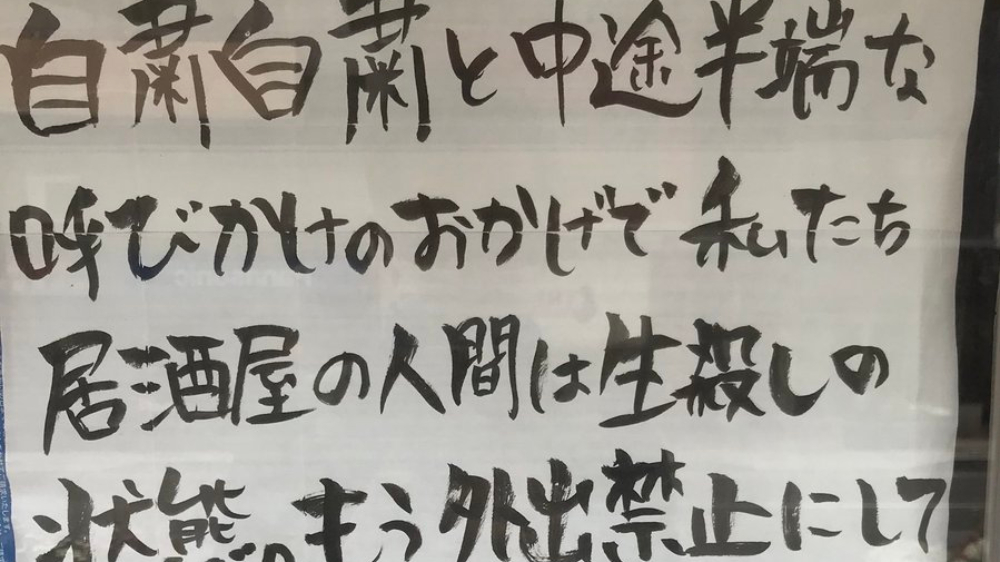 自粛自粛と中途半端な
呼びかけのおかげで私たち
居酒屋の人間は生殺しの
状態。もう外出禁止にして